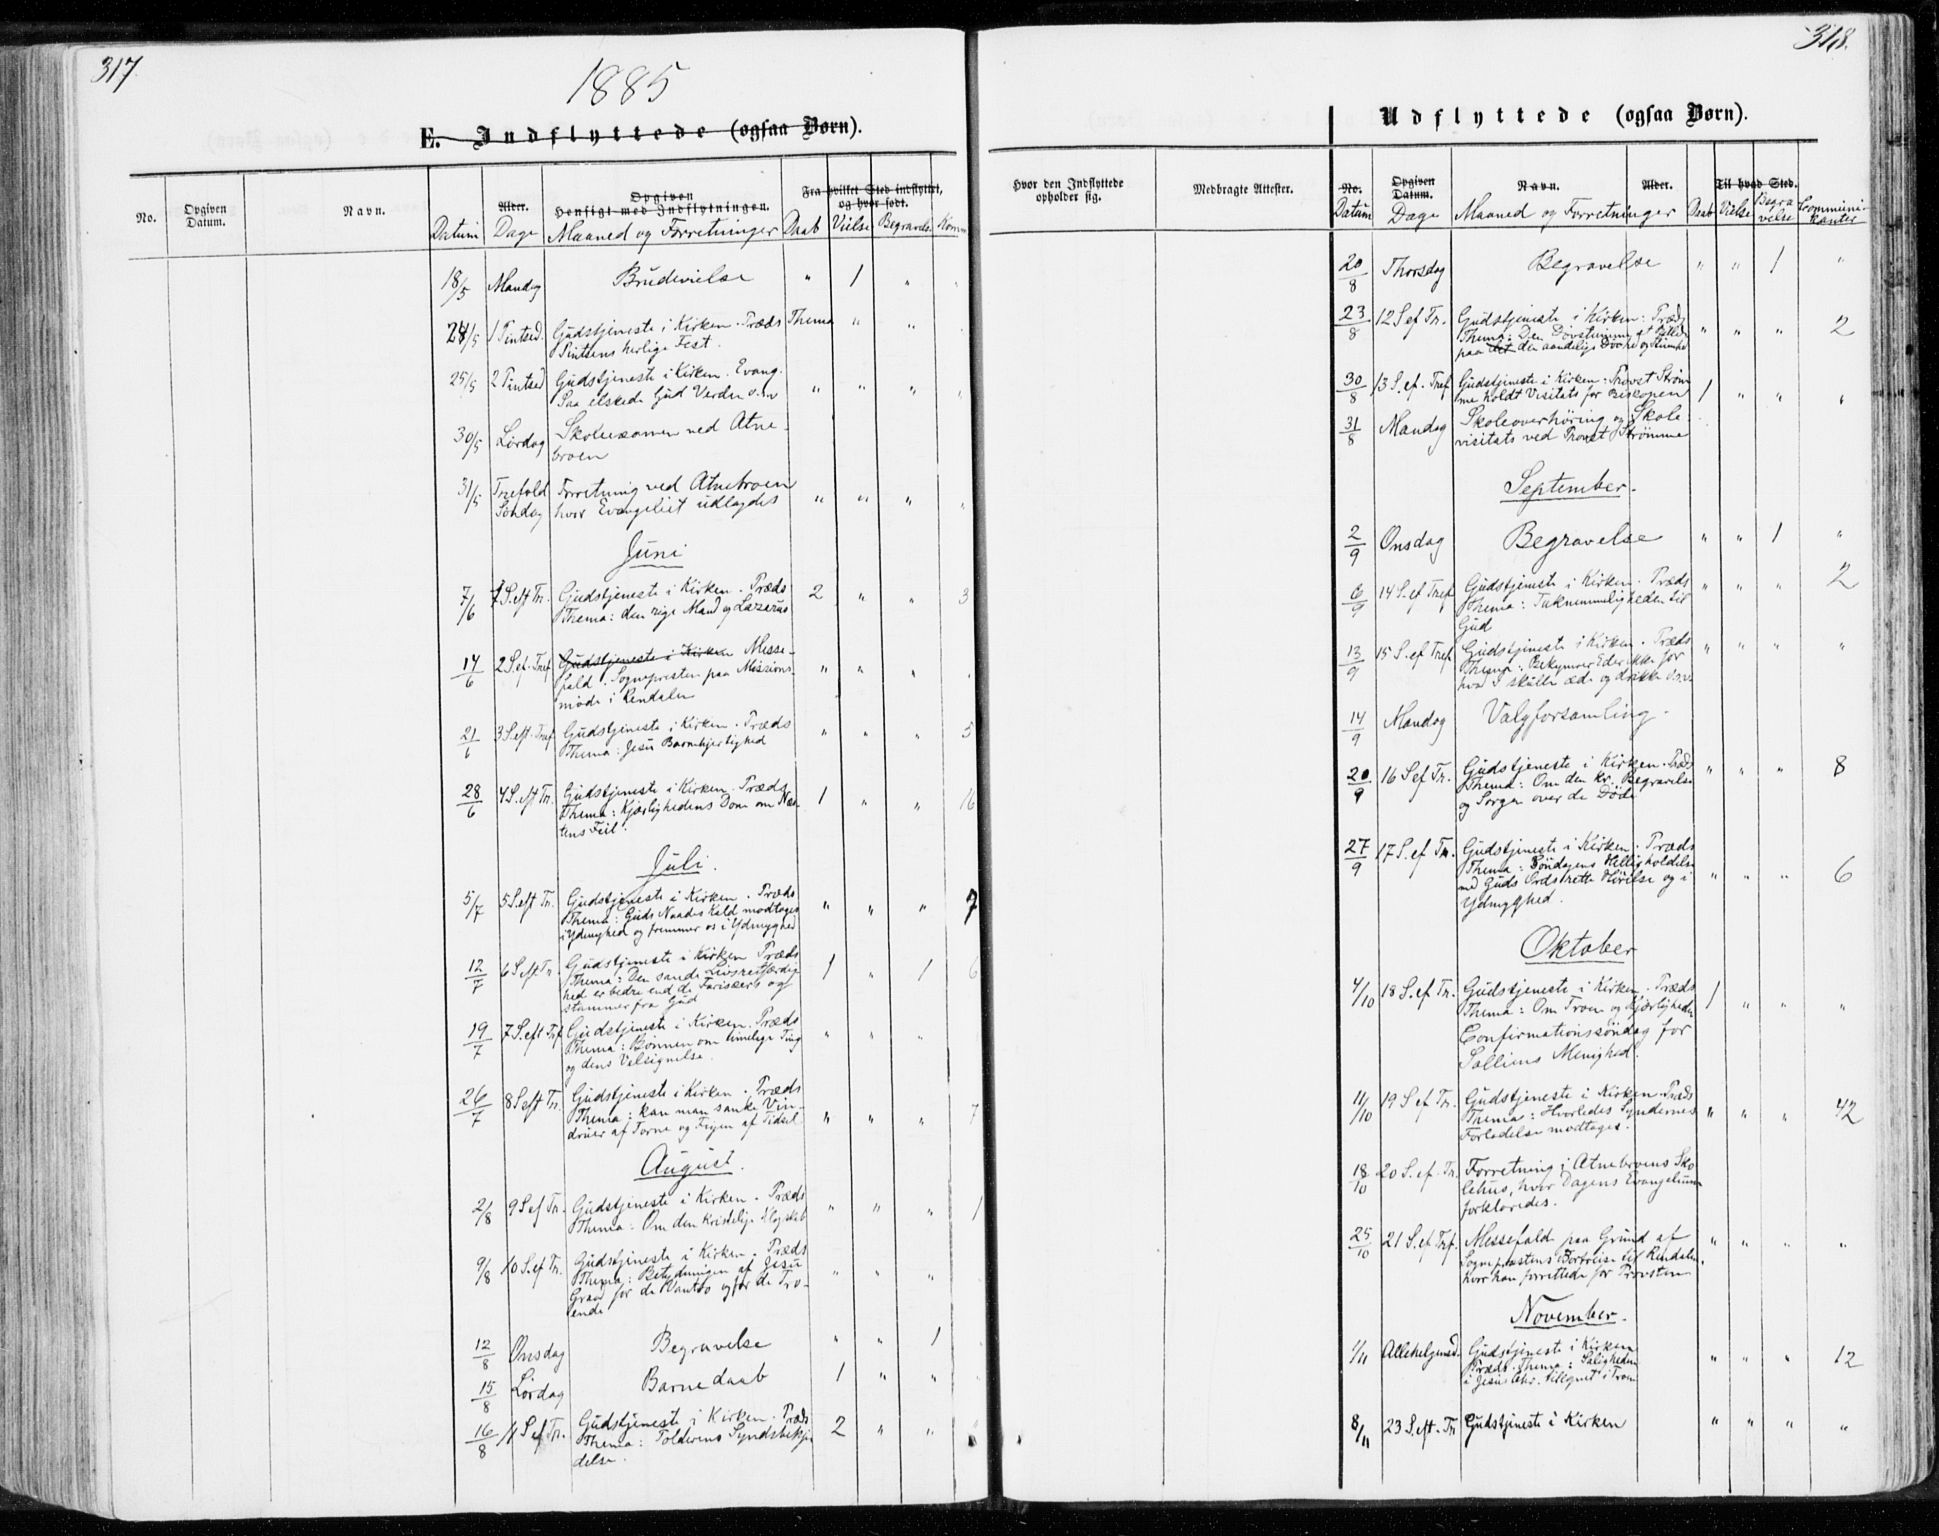 317.
1885
E. Indflyttede (ogsaa Børn).
No.
Opgiven Datum.
Navn.
Alder.
Opgiven Hensigt med Indflytningen.
Fra hvilket Sted indflyttet, og hvor født.
Datum Dage Maaned og Forretninger Daab Vielse Begravelse Komm
18/5 Mandag Brudevielse " 1 " "
24/5 1 Pintsed. Gudstjeneste i Kirken. Præds Thema " "
Pintsens herlige Fest.
25/5 2 Pintsed Gudstjeneste i Kirken. Evang.
Saa elskede Gud Verden o.s.v " " " "
30/5 Lørdag Skoleexamen ved Atne-
broen
31/5 Trefold Forretning ved Atnebroen
Søndag hvor Evangeliet udlagdes " " " "
Juni
7/6 1 S. eft Tr. Gudstjeneste i Kirken. Præds 2 " " 3
Thema: den rige Mand og Lazarus
14/6 2 S. ef. Tref Gudstjeneste i Kirken Messe-
fald. Sognepresten paa Missions- " " " "
møde i Rendalen
21/6 3 S. eft. Tref Gudstjeneste i Kirken. Præds " " " 5
Thema: Jesu Barmhjertighed
28/6 4 S. eft Tr. Gudstjeneste i Kirken. Præds 1 " " 16
Thema: Kjærlighedens Dom om Næs-
tens Feil.
Juli.
5/7 5 S. eft Tr. Gudstjeneste i Kirken. Præds
Thema: Guds Naades Kald modtages " " " 7
i Ydmyghed og fremmer os i Ydmyghed
12/7 6 S. eft Tr. Gudstjeneste i Kirken Præds
Thema: Den sande Livsretfærdig- 1 " 1 6
hed er bedre end de Fariseers og
stammer fra Gud
19/7 7 S. eft Trf Gudstjeneste i Kirken. Præds
Thema: Bønnen om timelige Ting " " "
og dens Velsignelse.
26/7 8 S. eft Tr. Gudstjeneste i Kirken. Præds
Thema: kan man sanke Vin- " " " 7
druer af Torne og Figen af Tidsel
August.
2/8 9 S. ef Tr. Gudstjeneste i Kirken. Præds " " " 1
Thema: Om den kristelige Klogskab
9/8 10 S. ef Tr. Gudstjeneste i Kirken. Præds
Thema: Betydningen af Jesu " " "
Graad for de Vantro og for de Tro-
ende
12/8 Onsdag Begravelse " " 1
15/8 Lørdag Barnedaab 1 " "
16/8 11 S. ef Tr. Gudstjeneste i Kirken. Præds 2 " " "
Thema: Tolderens Syndsbekjen-
delse.
318.
Udflyttede (ogsaa Børn).
Hvor den Indflyttede opholder sig.
Medbragte Attester.
No.
Opgiven Datum.
Navn.
Alder.
Til hvad Sted.
Datum Dage Maaned og Forretninger Daab Vielse Begravelse Communikanter
20/8 Thorsdag Begravelse " " 1 "
23/8 12 S ef Tr. Gudstjeneste i Kirken: Præds
Thema: Den Døvstumme et Billede " " " 2
paa det den aandelige Døvhed og Stumhed
30/8 13 S. ef. Tref Gudstjeneste i Kirken: Provst Strøm-
me holdt Visitats for Biskopen 1 " " "
31/8 Mandag Skoleoverhøring og Skole-
visitats ved Provst Strømme
September.
2/9 Onsdag Begravelse " " 1 "
6/9 14 S. ef Tref Gudstjeneste i Kirken. Præds " " " 2
Thema: Taknemmeligheden til
Gud
13/9 15 S. ef Tref Gudstjeneste i Kirken. Præds " " " "
Thema: Bekymrer Eder ikke for
hvad I skulle æde og drikke o.s.v.
14/9 Mandag Valgforsamling.
20/9 16 S ef Tr. Gudstjeneste i Kirken. Præds " " " 8
Thema: Om den kr. Begravelse
og Sorgen over de Døde
27/9 17 S. ef Tr. Gudstjeneste i Kirken. Præds
Thema: Søndagens Helligholdelse
ved Guds Ords rette Hørelse og i " " " 6
Ydmyghed.
Oktober
4/10 18 S. ef Tr. Gudstjeneste i Kirken. Præds 1 " " "
Thema: Om Troen og Kjærligheden
Confirmationssøndag for
Solliens Menighed.
11/10 19 S ef Tr. Gudstjeneste i Kirken. Præds
Thema: Hvorledes Syndernes " " " 42
Forladelse modtages.
18/10 20 S. ef. Tr. Forretning i Atnebroens Sko-
lehus, hvor Dagens Evangelium
forklaredes.
25/10 21 S. ef Trf. Messefald paa Grund af " " " "
Sogneprestens Bortreise til Rendalen
hvor han forrettede for Provsten
November.
1/11 Allehelgensd. Gudstjeneste i Kirken
Præds. Thema: Saligheden " " " 12
i Jesus Chr. tilegnet i Troen
8/11 23 S. eft. Tr Gudstjeneste i Kirken " " " "